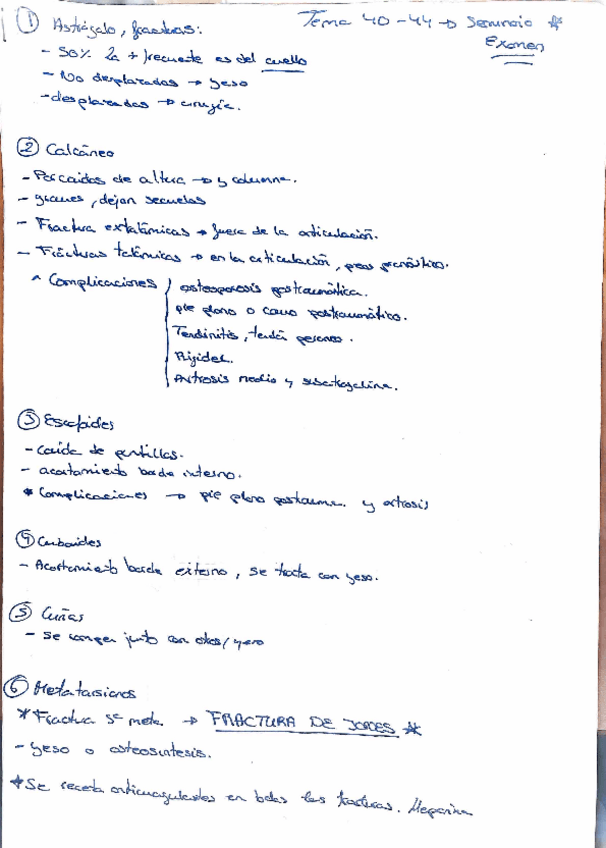 Tema 40-44 → Seminario *
Examen
① Astrágalo, fracturas:
- 50% la + frecuente es del cuello
- No desplazadas → yeso
- desplazadas → cirugía.
② Calcáneo
- Por caídas de altura → y columna.
- graves, dejan secuelas
- Fractura extatálmicas → fuera de la articulación.
- Fracturas talámicas → en la articulación, peor pronóstico.
^ Complicaciones
osteoporosis postraumática.
pie plano o cavo postraumático.
Tendinitis, tendón peroneo.
Rigidez.
Artrosis medio y subastragalina.
③ Escafoides
- caída de puntillas.
- acortamiento borde interno.
* Complicaciones → pie plano postraum. y artrosis
④ Cuboides
- Acortamiento borde externo, se trata con yeso.
⑤ Cuñas
- se rompen junto con otros/yeso
⑥ Metatarsianos
* Fractura 5º meta. → FRACTURA DE JONES *
- yeso o osteosíntesis.
* Se receta anticoagulantes en todas las fracturas. Heparina